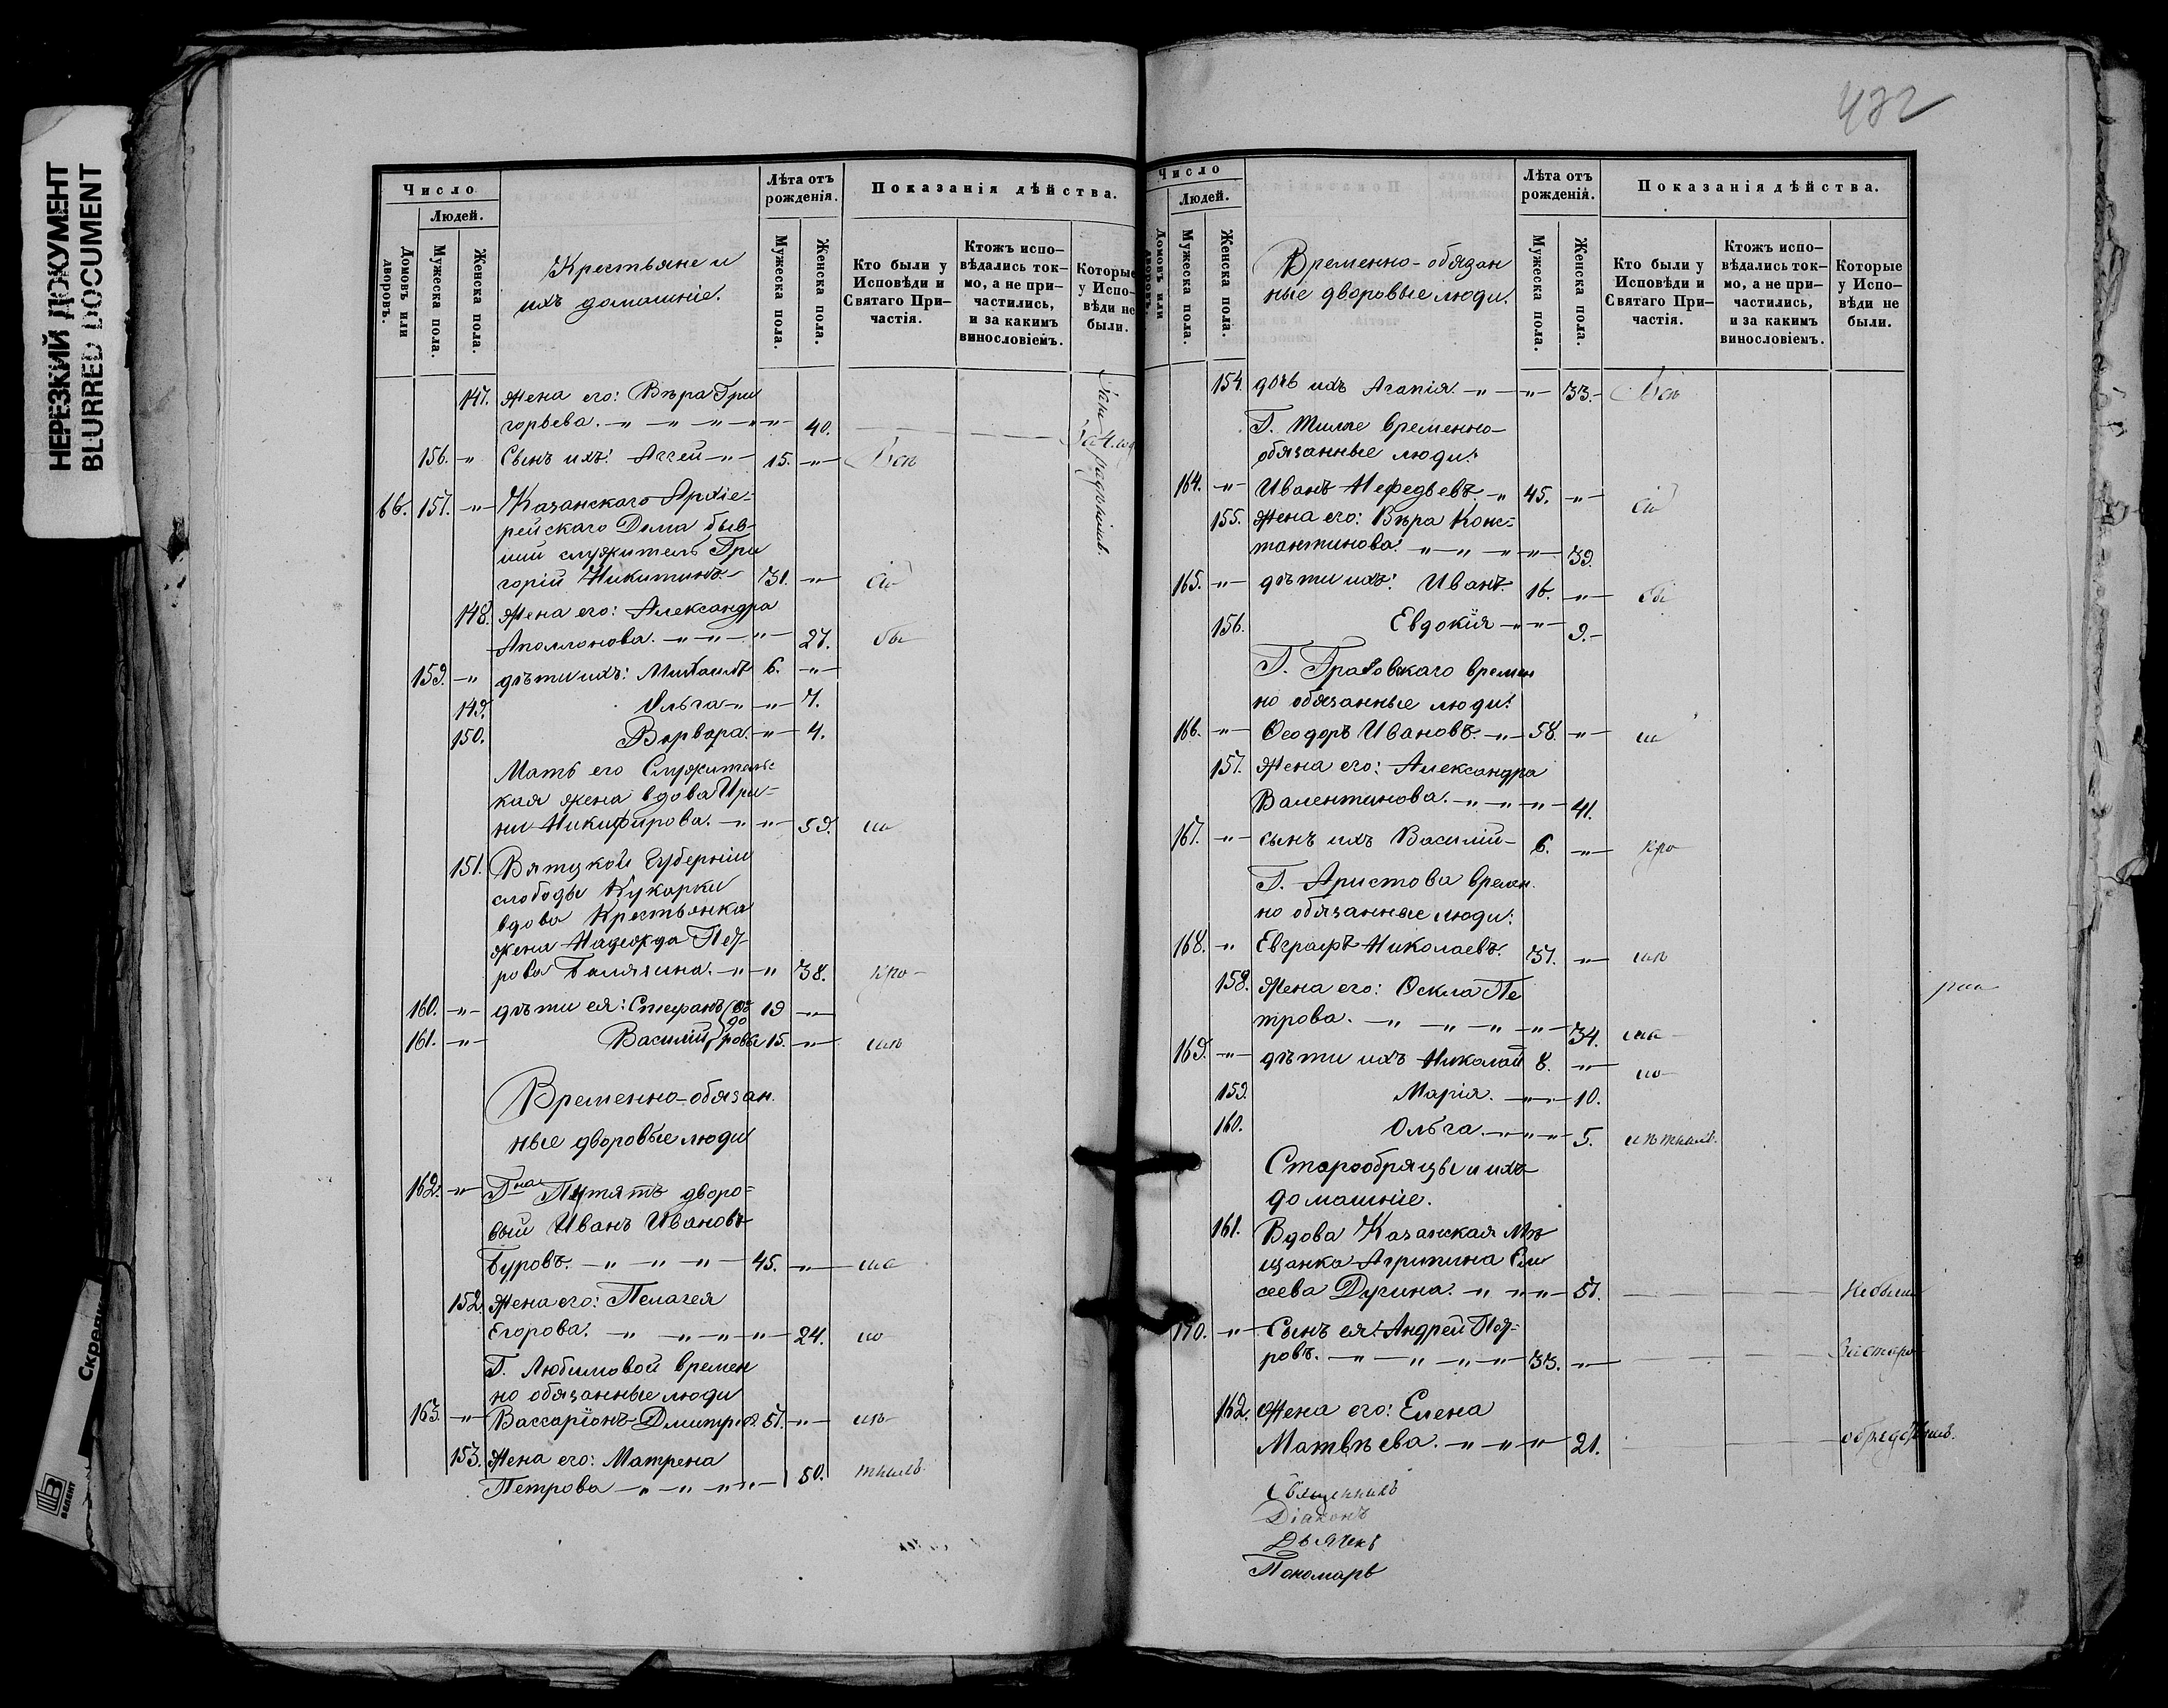 НЕРЕЗКИЙ ДОКУМЕНТ
BLURRED DOCUMENT
Число
Людей.
Домовъ или дворовъ.
Мужеска пола.
Женска пола.
Крестьяне и
ихъ домашніе.
Лѣта отъ рожденія.
Мужеска пола.
Женска пола.
Показанія дѣйства.
Кто были у Исповѣди и Святаго Причастія.
Ктожъ исповѣдались токмо, а не причастились, и за какимъ винословіемъ.
Которые у Исповѣди не были.
147. Жена его: Вѣра Гри
горьева. 40.
156. Сынъ ихъ: Аггей 15.
66. 157. Казанскаго Архіе-
рейскаго Дома быв-
шій служитель Гри
горій Никитинъ. 31.
148. Жена его: Александра
Аполлонова. 27. бы
159. дѣти ихъ: Михаилъ 6.
149. Ольга 7.
150. Варвара. 4.
Мать его Служительс-
кая жена вдова Ири-
на Никифорова. 59.
151. Вятцкой Губерніи
слободы Кукарки
вдова Крестьянка
жена Надежда Пет-
рова 38.
160. дѣти ея: Стефанъ 19
161. Василій 15.
Временно-обязан
ные дворовые люди
162. дворо-
вый Иванъ Ивановъ
Буровъ. 45.
152. Жена его: Пелагея
Егорова. 24.
Г. Любимовой времен
но обязанные люди
163. Вассаріонъ Дмитріевъ 57.
153. Жена его: Матрена
Петрова 50.
432
Число
Людей.
Домовъ или дворовъ.
Мужеска пола.
Женска пола.
Временно-обязан
ные дворовые люди.
Лѣта отъ рожденія.
Мужеска пола.
Женска пола.
Показанія дѣйства.
Кто были у Исповѣди и Святаго Причастія.
Ктожъ исповѣдались токмо, а не причастились, и за какимъ винословіемъ.
Которые у Исповѣди не были.
154. дочь ихъ Агапія. 33.
Г. временно-
обязанные люди:
164. Иванъ Мефедьевъ. 45.
155. Жена его: Вѣра Конс-
тантинова. 39.
165. дѣти ихъ: Иванъ. 16. бы
156. Евдокія 9.
Г. времен
но обязанные люди:
166. Ѳеодоръ Ивановъ. 58.
157. Жена его: Александра
Валентинова. 41.
167. сынъ ихъ Василій 6.
Г. Аристова времен.
но обязанные люди:
168. Евграфъ Николаевъ. 37.
158. Жена его: Ѳекла Пе
трова. 34.
169. дѣти ихъ Николай 8.
159. Марія. 10.
160. Ольга. 5.
Старообрядцы и ихъ
домашніе.
161. Вдова Казанская Мѣ
щанка Агрипина Ели
сеева 57. Не были
170. Сынъ ея: Андрей Пет-
ровъ. 33. за старо
162. Жена его: Елена
Матвѣева. 21.
Священникъ
Діаконъ
Дьячекъ
Пономарь